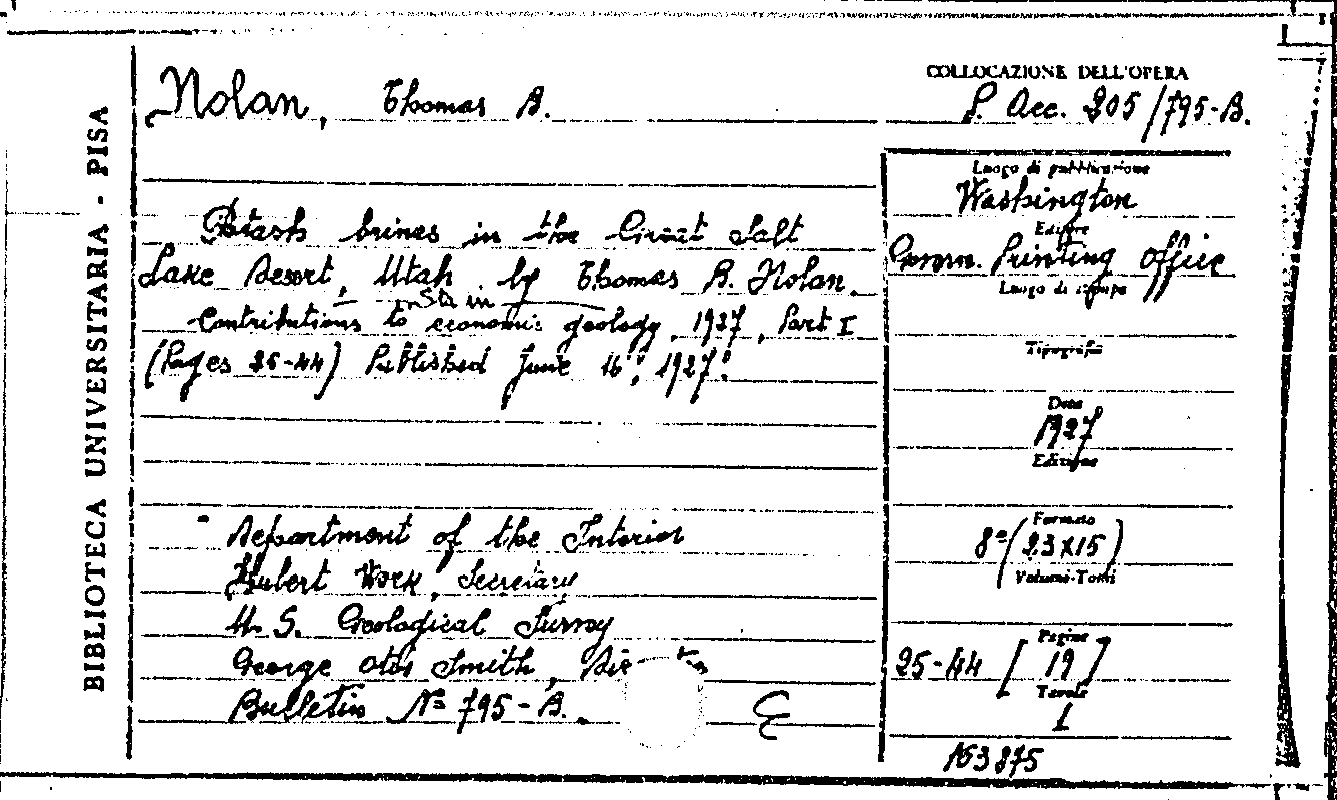 BIBLIOTECA UNIVERSITARIA - PISA
Nolan, Thomas B.
COLLOCAZIONE DELL'OPERA
P. Acc. 205/795-B.
Potash brines in the Great Salt
Lake Desert, Utah by Thomas B. Nolan.
Contributions to economic geology, 1927, Part I
(Pages 25-44) Published June 16", 1927".
Luogo di pubblicazione
Washington
Editore
Govern. Printing Office
Luogo di stampa
Tipografia
Data
1927
Edizione
Formato
8º (23X15)
Volumi-Tomi
Pagine
25-44 [19]
Tavole
I
163875
Department of the Interior
Hubert Work, Secretary
U. S. Geological Survey
George Otis Smith,
Bulletin Nº 795-B.